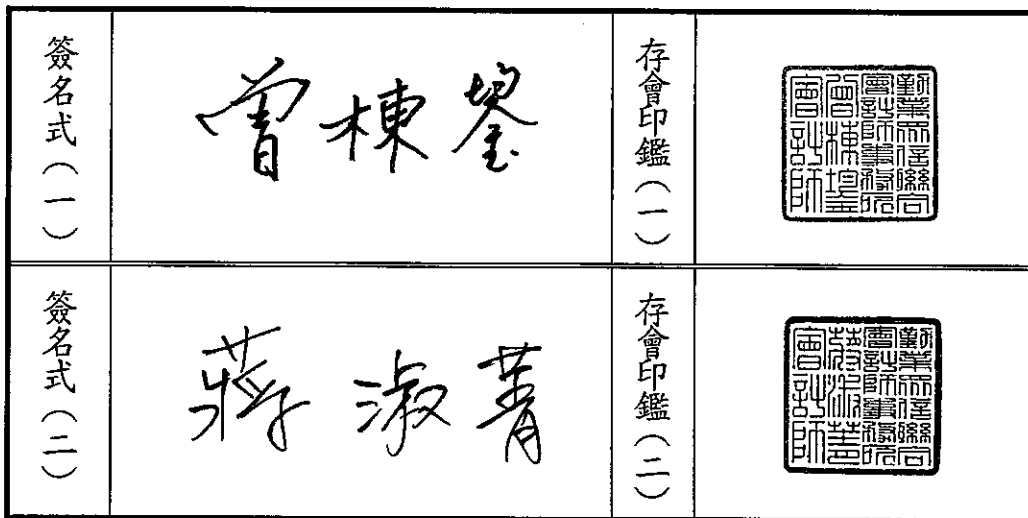 簽名式(一)
曾棟鋆
存會印鑑(一)
勤業眾信聯合
會計師事務所
曾棟鋆
會計師
簽名式(二)
蔣淑菁
存會印鑑(二)
勤業眾信聯合
會計師事務所
蔣淑菁
會計師